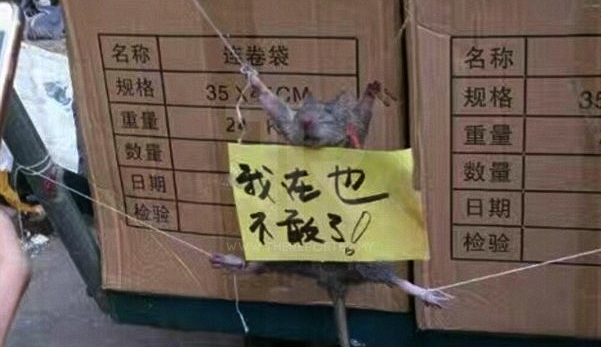 名称 连卷袋
规格 35X45CM
重量
数量
日期
检验
我在也
不敢了!
名称
规格 35
重量
数量
日期
检验